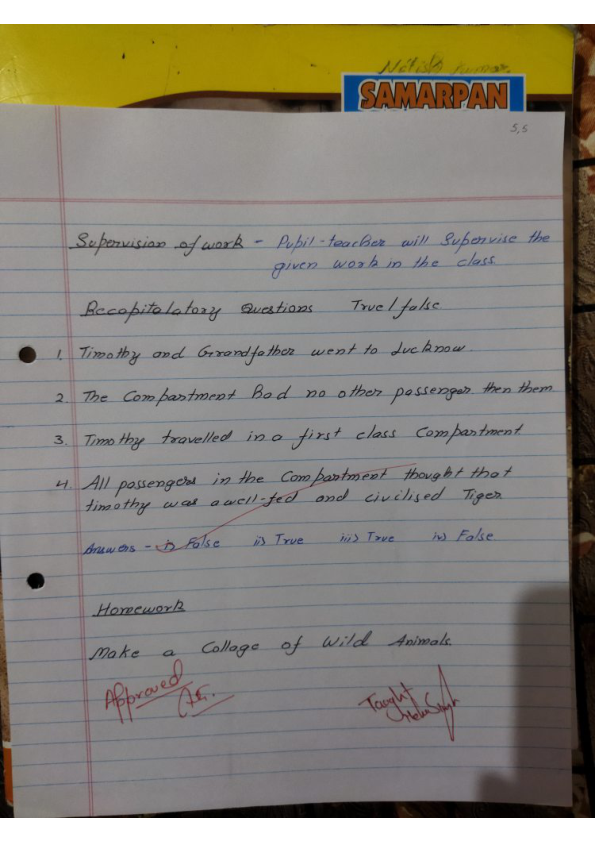 Nitish Kumar.
SAMARPAN
5,5
Supervision of work - Pupil-teacher will Supervise the
given work in the class
Recapitulatory Questions True/false
1. Timothy and Grandfather went to Lucknow.
2. The Compartment had no other passenger then them
3. Timothy travelled in a first class Compartment
4. All passengers in the Compartment thought that
timothy was a well-fed and civilised Tiger
Answers - i) False ii) True iii) True iv) False
Homework
Make a Collage of Wild Animals.
Approved
Taught